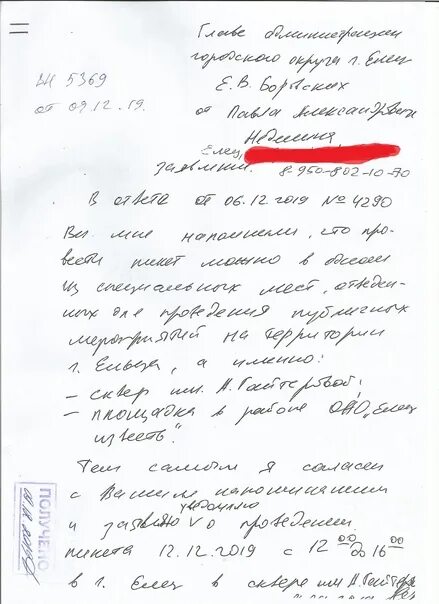 Главе администрации
городского округа г. Елец
Е.В. Боровских
от Павла Александровича
Неделина
Елец,
заявление. 8-950-802-10-70
ВН 5369
от 09.12.19.
В ответа от 06.12.2019 № 4290
Вы мне напомнили, что про-
вести пикет можно в одном
из специальных мест, отведен-
ных для проведения публичных
мероприятий на территории
г. Ельца, а именно:
- сквер им. Н. Гайтеровой;
- площадка в районе ОАО „Елец
известь".
Тем самым я согласен
с Вашим напоминанием
уведомляю
и заявляю о проведении
пикета 12.12.2019 с 12 00 до 16 00
в г. Елец в сквере им Н. Гайтер
ПОЛУЧЕНО